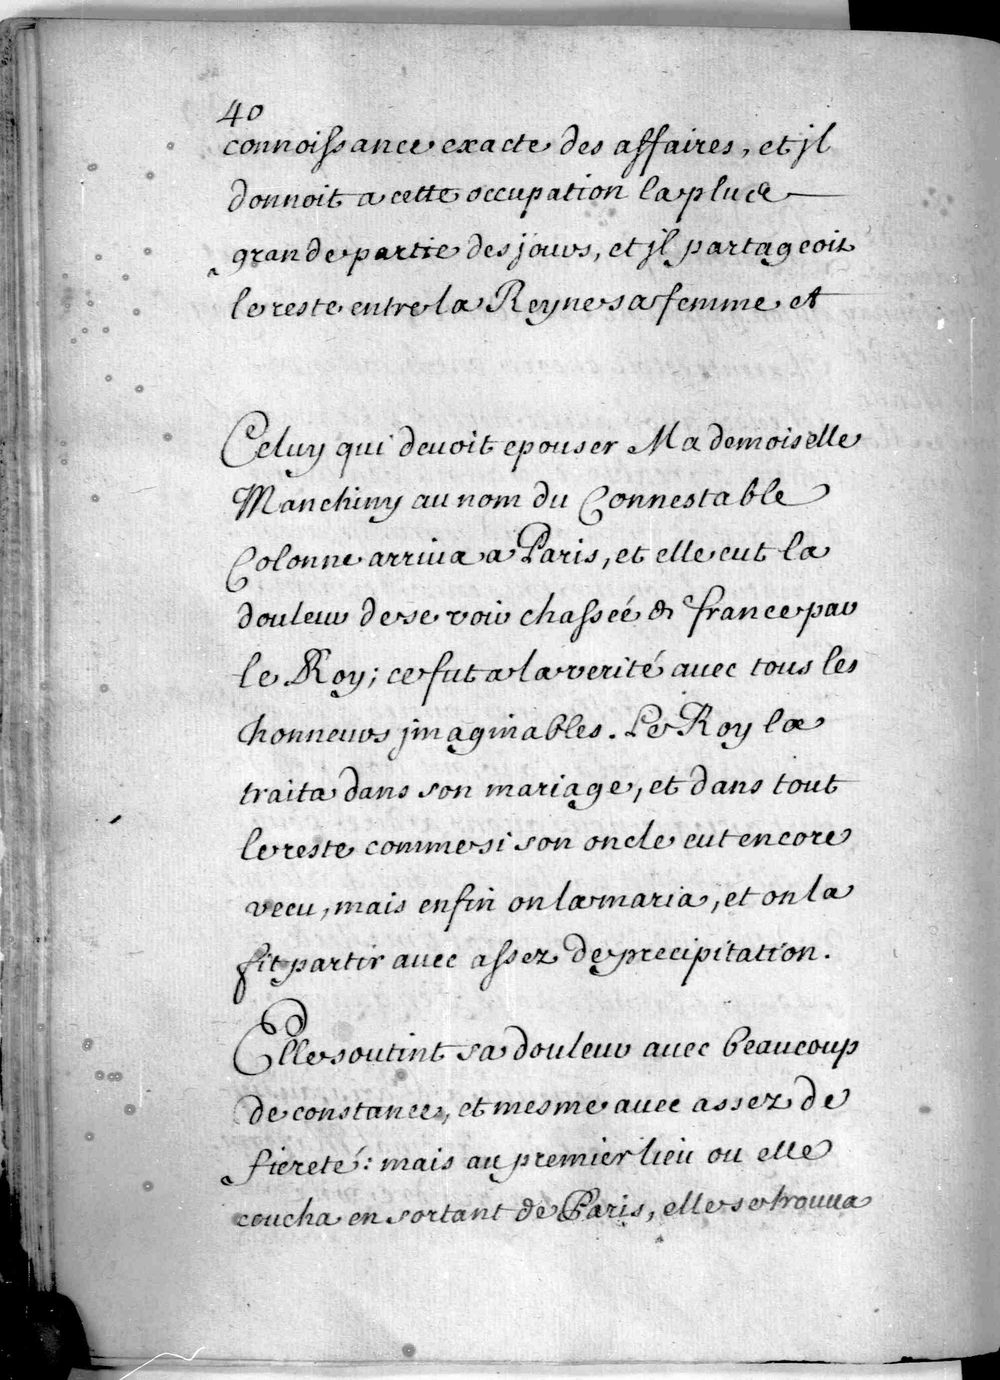 40
connoissance exacte des affaires, et jl
donnoit a cette occupation la plus
grande partie des jours, et jl partageoit
le reste entre la Reyne sa femme et
Celuy qui deuoit epouser Mademoiselle
Manchiny au nom du Connestable
Colonne arriua a Paris, et elle eut la
douleur de se voir chassée de france par
le Roy; ce fut a la verité auec tous les
honneurs jmaginables. Le Roy la
traita dans son mariage, et dans tout
le reste comme si son oncle eut encore
vecu, mais enfin on la maria, et on la
fit partir auec assez de precipitation.
Elle soutint sa douleur auec beaucoup
de constance, et mesme auec assez de
fiereté: mais au premier lieu ou elle
coucha en sortant de Paris, elle se trouua